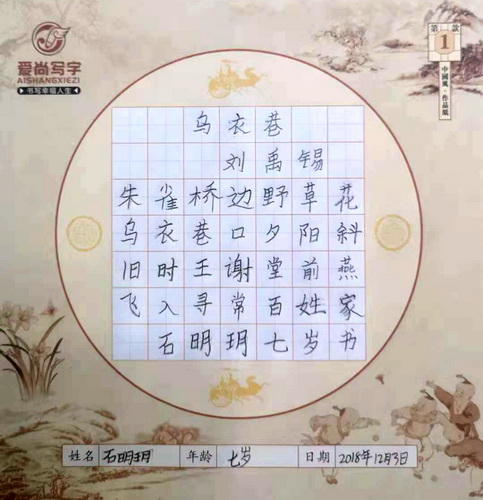 爱尚写字
AISHANGXIEZI
书写幸福人生
第1款
中國風·作品紙
乌衣巷
刘禹锡
朱雀桥边野草花
乌衣巷口夕阳斜
旧时王谢堂前燕
飞入寻常百姓家
石明玥七岁书
姓名 石明玥 年龄 七岁 日期 2018年12月3日